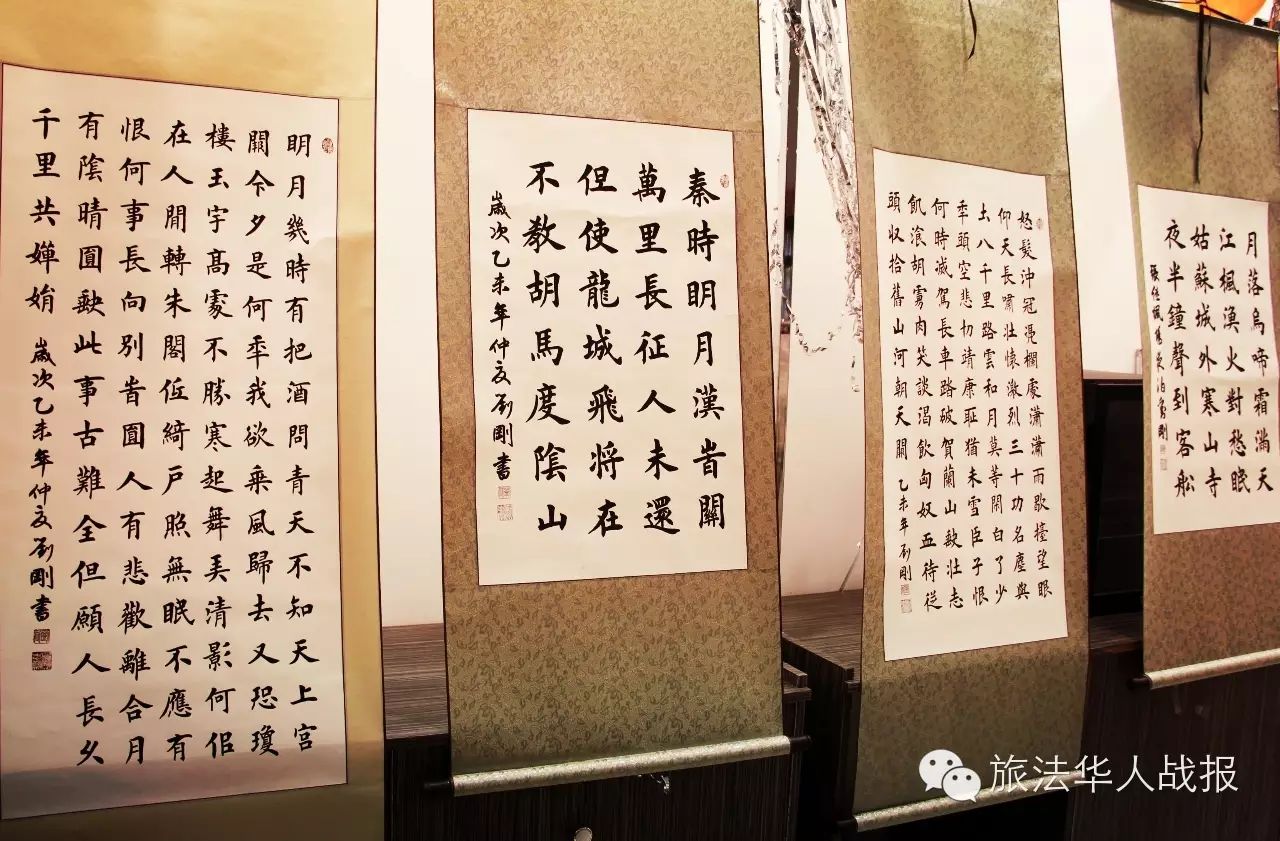 明月幾時有把酒問青天不知天上宮
闕今夕是何年我欲乘風歸去又恐瓊
樓玉宇高處不勝寒起舞弄清影何佀
在人間轉朱閣低綺戶照無眠不應有
恨何事長向別旹圓人有悲歡離合月
有陰晴圓缺此事古難全但願人長久
千里共嬋娟 歲次乙未年仲夏刘剛書
秦時明月漢旹關
萬里長征人未還
但使龍城飛将在
不教胡馬度陰山
歲次乙未年仲夏刘剛書
怒髮沖冠凭欄處瀟瀟雨歇擡望眼
仰天長嘯壯懷激烈三十功名塵與
土八千里路雲和月莫等閒白了少
年頭空悲切靖康恥猶未雪臣子恨
何時滅駕長車踏破賀蘭山缺壯志
飢湌胡虜肉笑談渴飲匈奴血待從
頭収拾舊山河朝天闕 乙未年刘剛
月落烏啼霜滿天
江楓漁火對愁眠
姑蘇城外寒山寺
夜半鐘聲到客舩
旅法华人战报